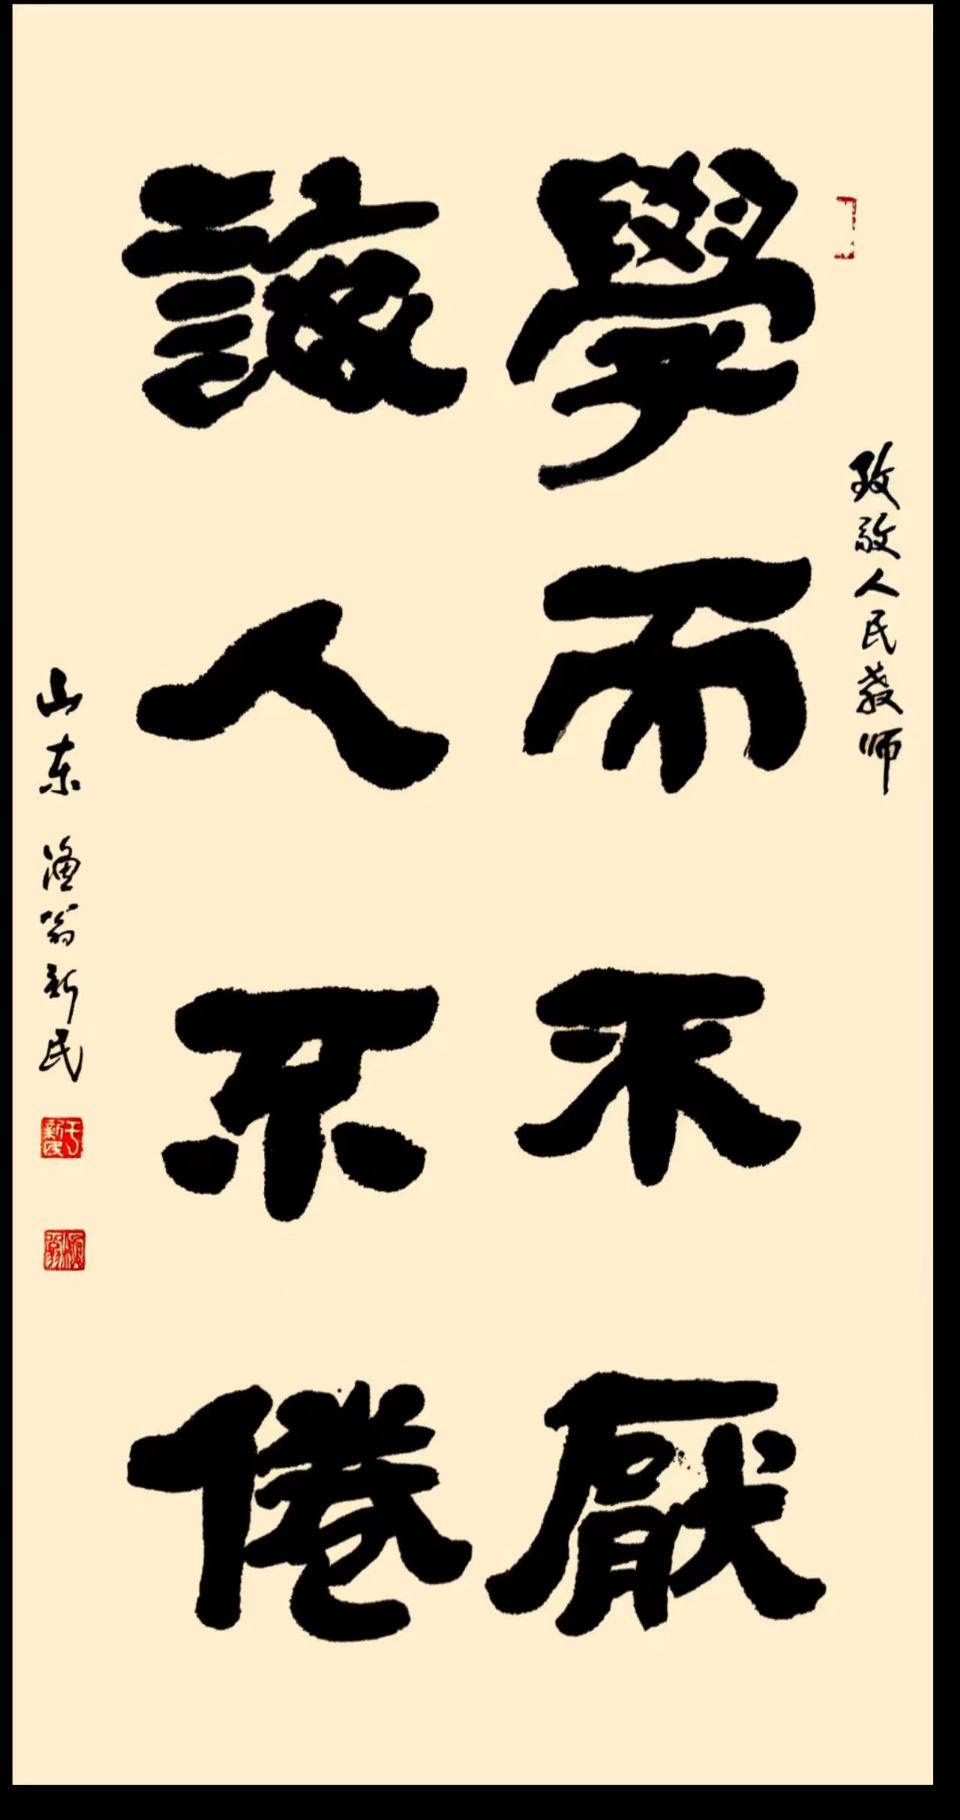 致敬人民教师
學而不厭
誨人不倦
山东 渔翁新民